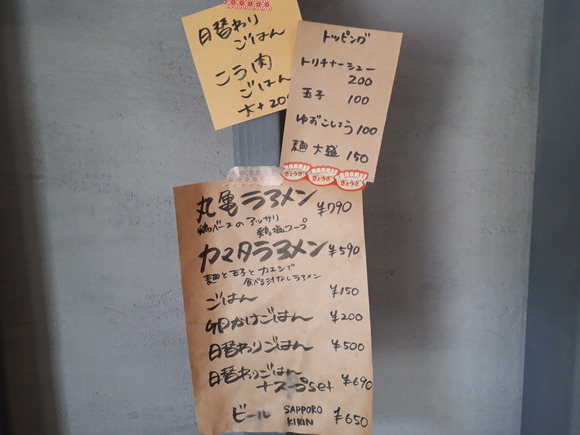 日替わり
ごはん
こう肉
ごはん
大+200
トッピング
トリチャーシュー
200
玉子 100
ゆずこしょう 100
麺大盛 150
ぎょうざ ぎょうざ ぎょうざ
丸亀ラーメン ¥790
鶏ベースのアッサリ
鶏塩スープ
カマタラーメン ¥590
麺と玉子とカエシで
食べる汁なしラーメン
ごはん ¥150
卵かけごはん ¥200
日替わりごはん ¥500
日替わりごはん
+スープset ¥690
ビール SAPPORO
KIRIN ¥650